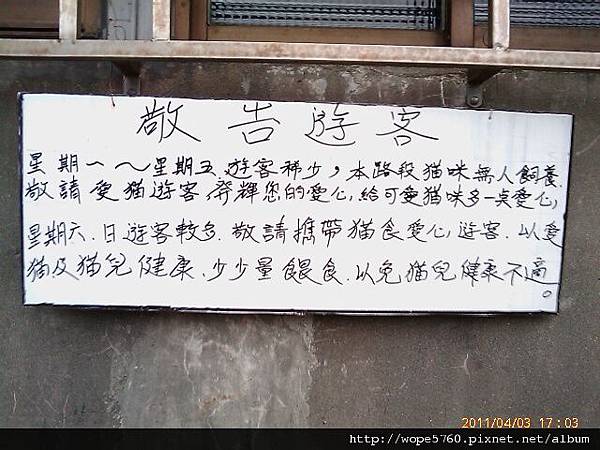 敬告遊客
星期一～星期五.遊客稀少，本路段貓咪無人飼養.
敬請愛貓遊客發輝您的愛心,給可愛貓咪多一点愛心,
星期六.日遊客較多.敬請攜帶貓食愛心,遊客.以愛
貓及貓兒健康.少少量餵食.以免貓兒健康不適。
2011/04/03 17:03
http://wope5760.pixnet.net/album